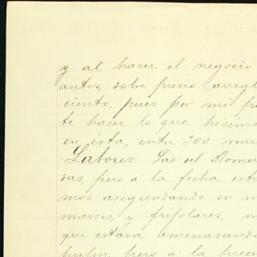 y al hacer el negocio
antes, sobre precio arregl
ciento, pues por mi pa
te hacer lo que hicimo
en ésta, entre 300 mue
Labores. Las del Romer
das, pero á la fecha esta
mos asegurdando en m
maises, y frijolares, m
que estava amenasando
pero á la preci